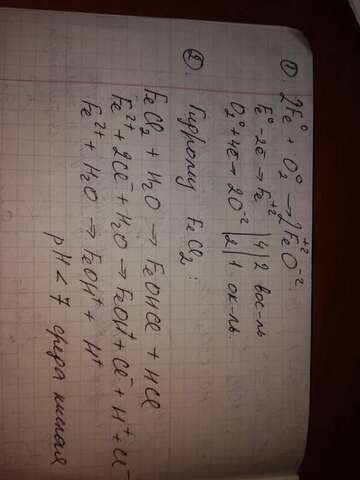 ① 2Fe⁰ + O₂⁰ → 2Fe⁺²O⁻²
Fe⁰ - 2ē → Fe⁺² | 4 | 2 вос-ль
O₂⁰ + 4ē → 2O⁻² | 2 | 1 ок-ль
② Гидролиз FeCl₂:
FeCl₂ + H₂O → FeOHCl + HCl
Fe²⁺ + 2Cl⁻ + H₂O → FeOH⁺ + Cl⁻ + H⁺ + Cl⁻
Fe²⁺ + H₂O → FeOH⁺ + H⁺
pH < 7 среда кислая